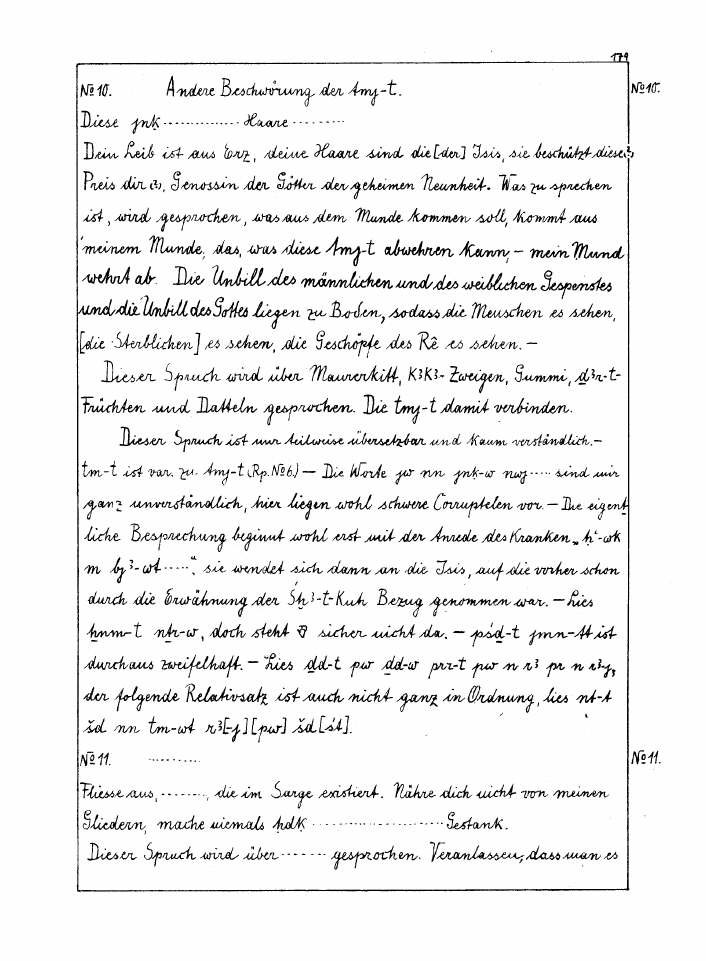 179
№ 10. Andere Beschwörung der tmj-t. № 10.
Diese jnk ............... Haare .........
Dein Leib ist aus Erz, deine Haare sind die [der] Isis, sie beschützt diese(?)
Preis dir (?), Genossin der Götter der geheimen Neunheit. Was zu sprechen
ist, wird gesprochen, was aus dem Munde kommen soll, kommt aus
meinem Munde, das, was diese tmj-t abwehren kann, – mein Mund
wehrt ab. Die Unbill des männlichen und des weiblichen Gespenstes
und die Unbill des Gottes liegen zu Boden, sodass die Menschen es sehen,
[die Sterblichen] es sehen, die Geschöpfe des Rê es sehen. –
Dieser Spruch wird über Maurerkitt, k³k³-Zweigen, Gummi, d³r-t-
Früchten und Datteln gesprochen. Die tmj-t damit verbinden.
Dieser Spruch ist nur teilweise übersetzbar und kaum verständlich. –
tm-t ist var. zu tmj-t (Rp. № 6.) – Die Worte jw nn jnk-w nwj ..... sind mir
ganz unverständlich, hier liegen wohl schwere Corruptelen vor. – Die eigent
liche Besprechung beginnt wohl erst mit der Anrede des Kranken „ḥʿ-wk
m bj³-wt ....." sie wendet sich dann an die Isis, auf die vorher schon
durch die Erwähnung der Sḫ³-t-Kuh Bezug genommen war. – Lies
ḫnm-t nṯr-w, doch steht sicher nicht da. – psḏ-t jmn-tt ist
durchaus zweifelhaft. – Lies ḏd-t pw ḏd-w prr-t pw n r³ pr n r³-j,
der folgende Relativsatz ist auch nicht ganz in Ordnung, lies nt-t
šd nn tm-wt r³[-j] [pw] šd [śt].
№ 11. .......... № 11.
Fliesse aus, ........, die im Sarge existiert. Nähre dich nicht von meinen
Gliedern, mache niemals ḥdk ...................... Gestank.
Dieser Spruch wird über ....... gesprochen. Veranlassen, dass man es